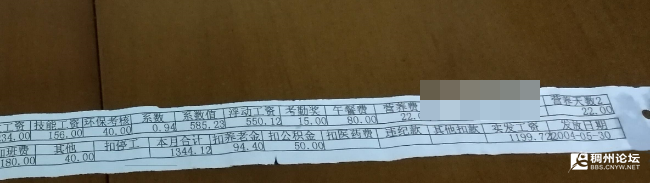 工资 技能工资 环保考核 系数 系数值 浮动工资 考勤奖 午餐费 营养费 营养天数2
34.00 156.00 40.00 0.94 585.23 550.12 15.00 80.00 22.00
加班费 其他 扣停工 本月合计 扣养老金 扣公积金 扣医药费 违纪款 其他扣款 实发工资 发放日期
180.00 40.00 1344.12 94.40 50.00 1199.72 2004-05-30
稠州论坛
BBS.CNYW.NET